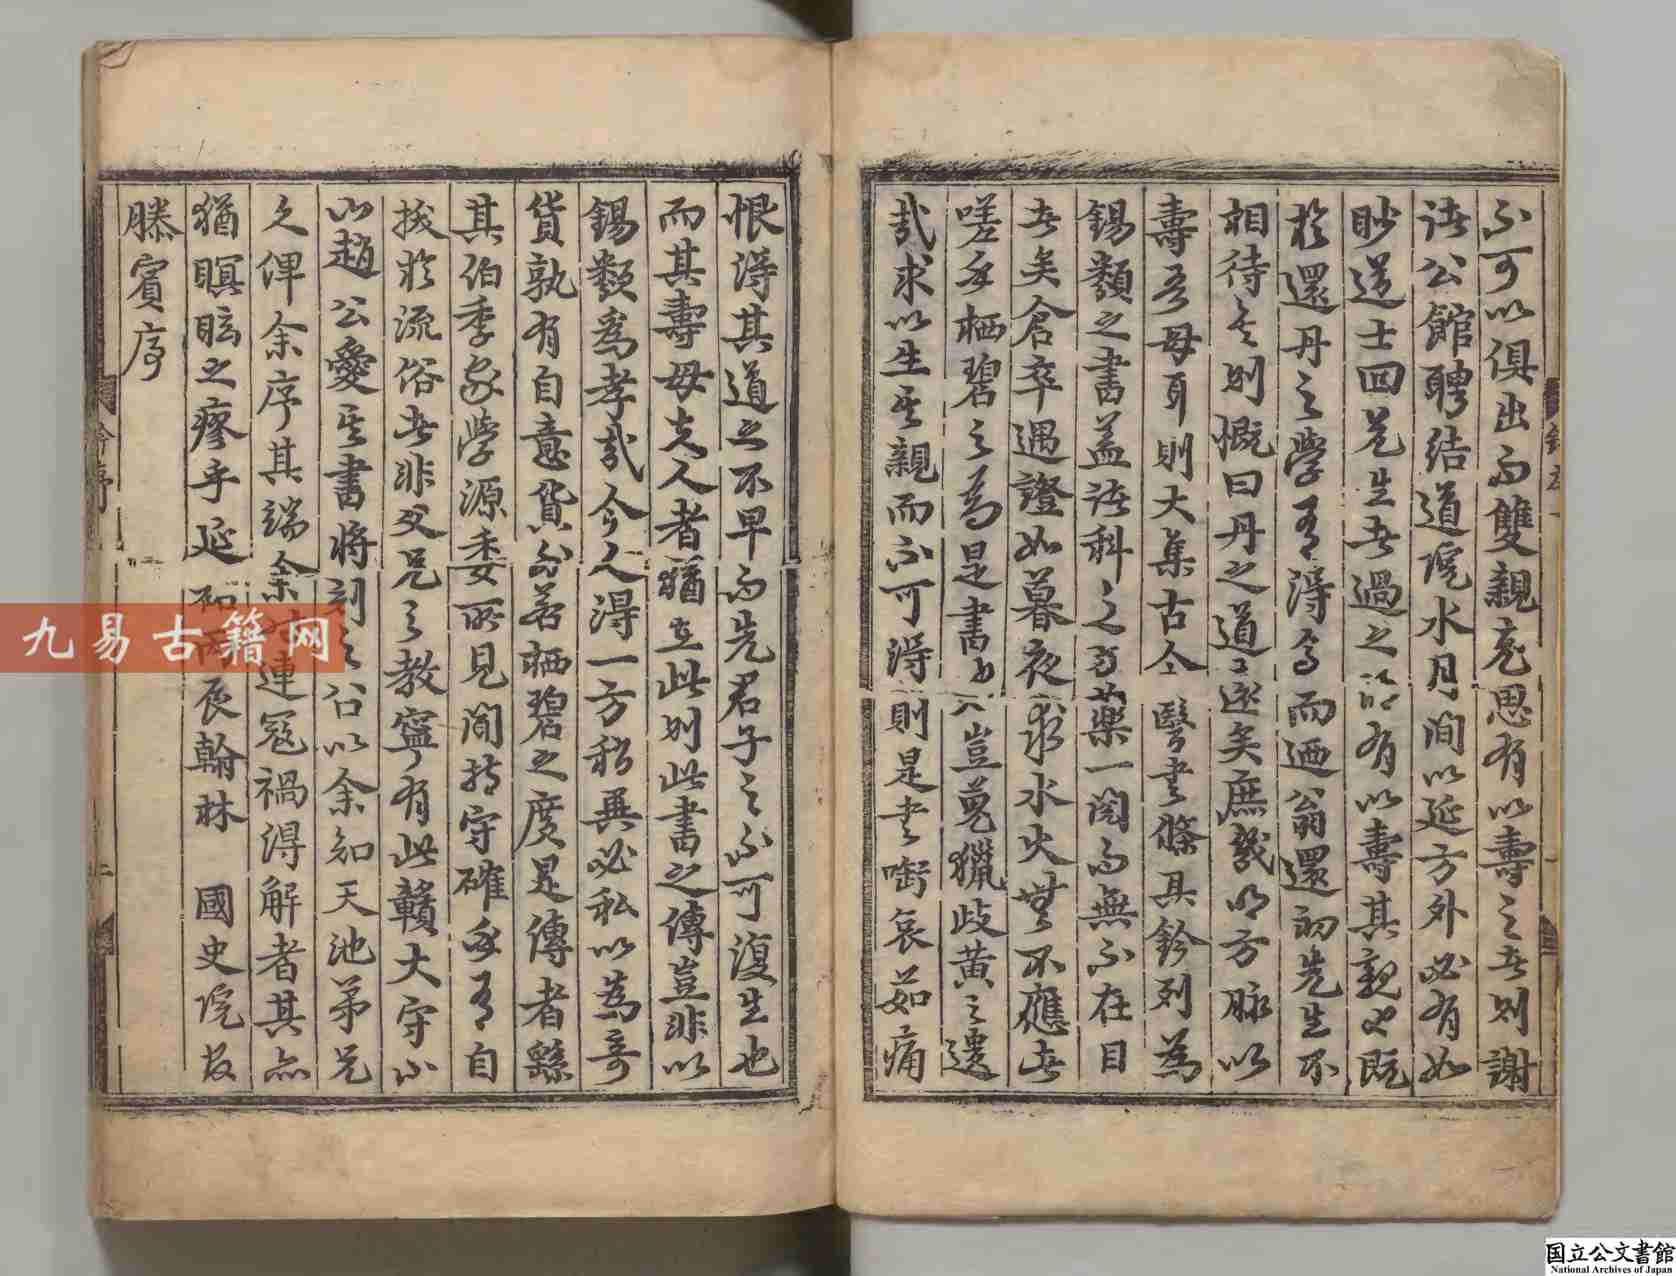 不可以俱出而雙親充思有以壽之者則謝
諸公館聘結道院水月間以延方外必有如
眇道士回先生者過之所有以壽其親也既
於還丹之學有得焉而廼翁還初先生不
相待矣則慨曰丹之道遠矣庶幾以方脉以
壽吾母耳則大集古今醫書條具鈐列為
錫類之書蓋諸科之方藥一閱而無不在目
者矣倉卒遇證如暮夜求水火無不應者
嗟乎栖碧之為是書也豈蒐獵歧黃之遺
哉求以生其親而不可得則是書啣哀茹痛
恨得其道之不早而先君子之不可復生也
而其壽母夫人者猶在此則此書之傳豈非以
錫類為孝哉今人得一方秘無必私以為奇
貨孰有自意貨而若栖碧之度是傳者繇
其伯季家學源委所見聞持守確乎有自
拔於流俗者非父兄之教寧有此贛大守小
山趙公愛其書將刻之公以余知天池弟兄
久俾余序其端余連寇禍得解者其亦
猶瞑眩之瘳乎延祐丙辰翰林 國史院
滕賓序
鈐序
九易古籍网
国立公文書館
National Archives of Japan